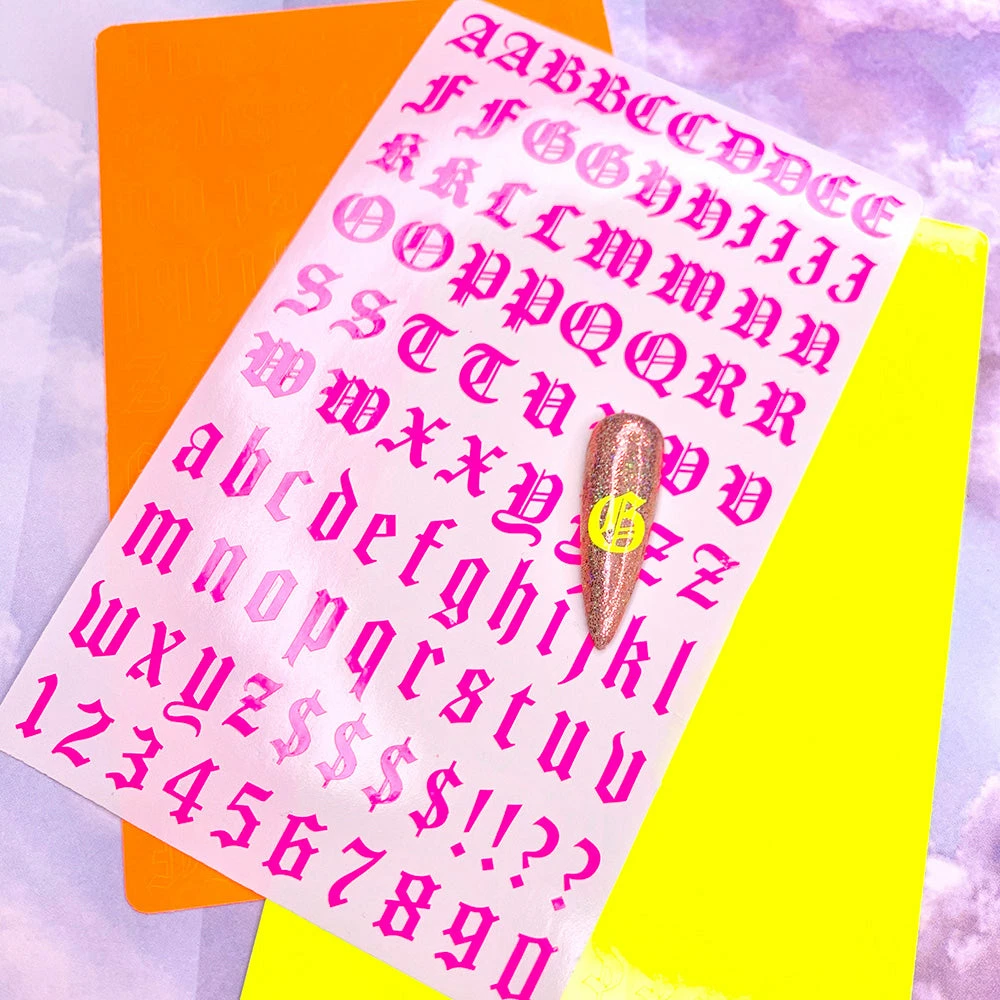 AABBCCDDEE
FFGGHHIIJJ
KKLLMMNN
OOPPQQRR
SSTTUVV
WWXXYZZ
G
abcdefghijkl
mnopqrstuv
wxyz$$$$!!??
1234567890